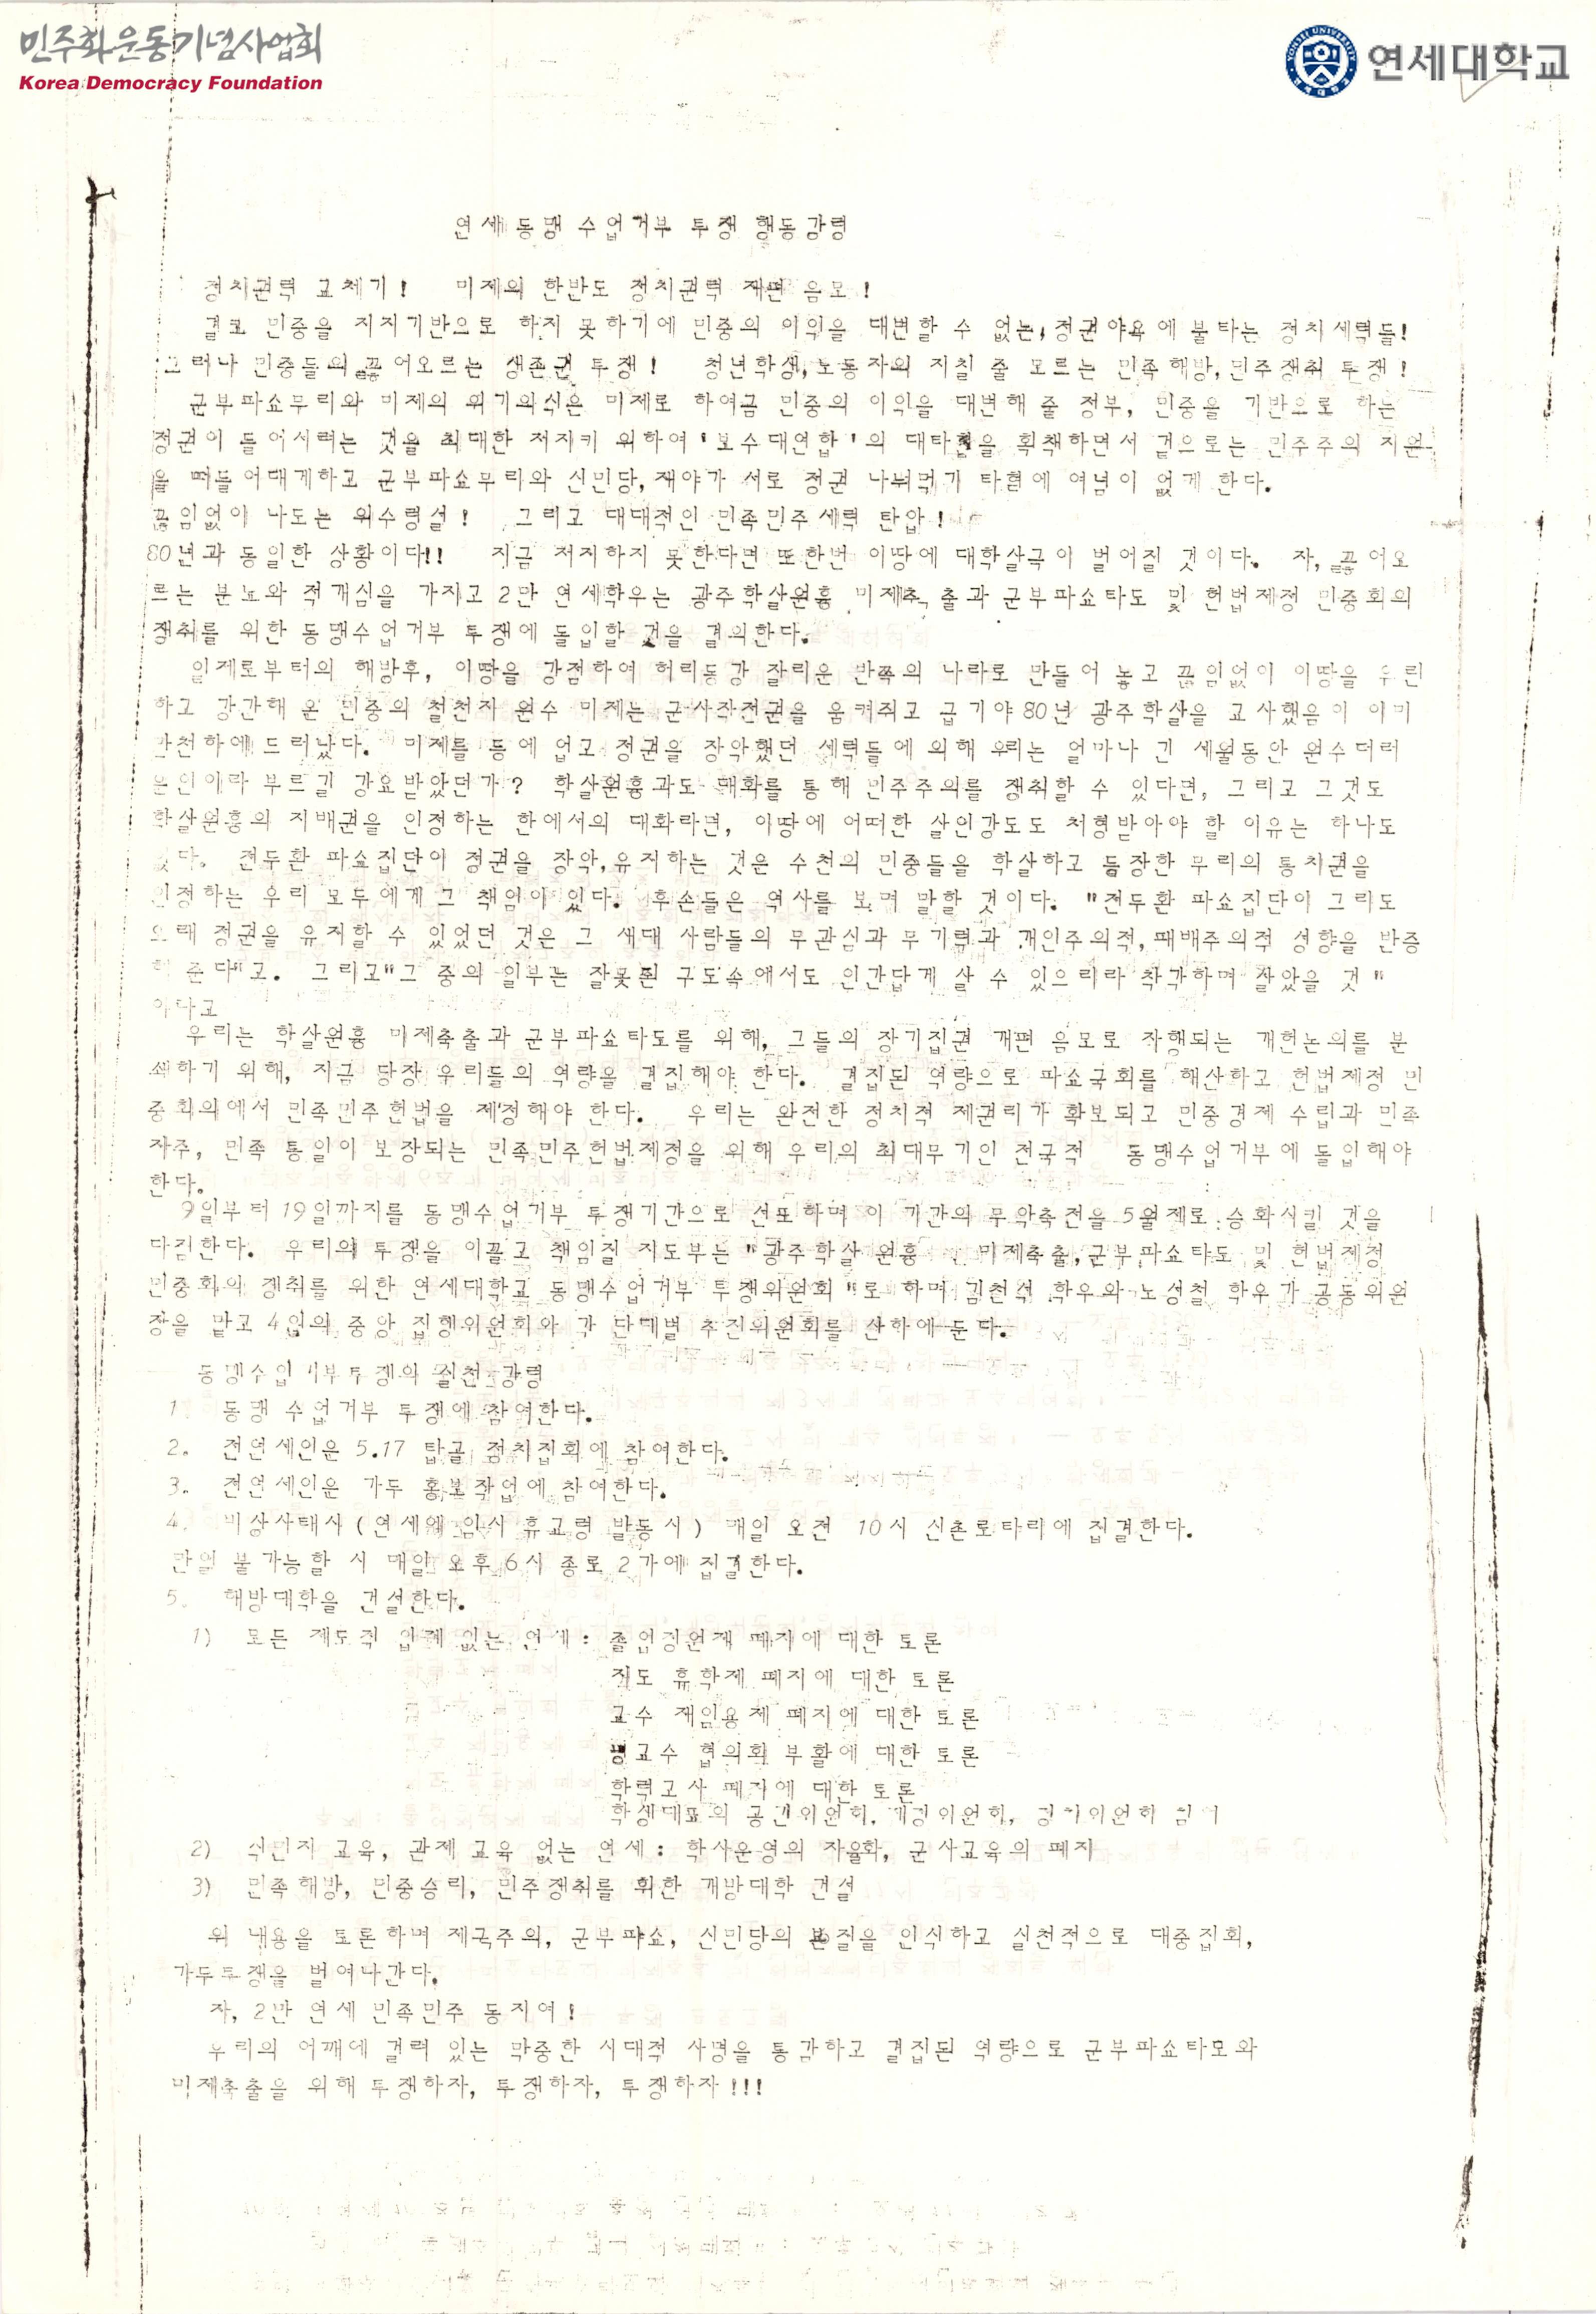 민주화운동기념사업회
Korea Democracy Foundation
연세대학교
연세 동맹 수업거부 투쟁 행동강령
정치권력 교체기! 미제의 한반도 정치권력 재편 음모!
결코 민중을 지지기반으로 하지 못하기에 민중의 이익을 대변할 수 없는, 정권야욕에 불타는 정치세력들!
그러나 민중들의 끓어오르는 생존권 투쟁! 청년학생, 노동자의 지칠 줄 모르는 민족해방, 민주쟁취 투쟁!
군부파쇼무리와 미제의 위기의식은 미제로 하여금 민중의 이익을 대변해 줄 정부, 민중을 기반으로 하는
정권이 들어서려는 것을 최대한 저지키 위하여 '보수대연합'의 대타협을 획책하면서 겉으로는 민주주의 지원
을 떠들어대게하고 군부파쇼무리와 신민당, 재야가 서로 정권 나눠먹기 타협에 여념이 없게 한다.
끊임없이 나도는 위수령설! 그리고 대대적인 민족민주세력 탄압!
80년과 동일한 상황이다!! 지금 저지하지 못한다면 또한번 이땅에 대학살극이 벌어질 것이다. 자, 끓어오
르는 분노와 적개심을 가지고 2만 연세학우는 광주학살원흉 미제축출과 군부파쇼타도 및 헌법제정 민중회의
쟁취를 위한 동맹수업거부 투쟁에 돌입할 것을 결의한다.
일제로부터의 해방후, 이땅을 강점하여 허리동강 잘리운 반쪽의 나라로 만들어 놓고 끊임없이 이땅을 유린
하고 강간해 온 민중의 철천지 원수 미제는 군사작전권을 움켜쥐고 급기야 80년 광주학살을 교사했음이 이미
만천하에 드러났다. 미제를 등에 업고 정권을 장악했던 세력들에 의해 우리는 얼마나 긴 세월동안 원수더러
은인이라 부르길 강요받았던가? 학살원흉과도 대화를 통해 민주주의를 쟁취할 수 있다면, 그리고 그것도
학살원흉의 지배권을 인정하는 한에서의 대화라면, 이땅에 어떠한 살인강도도 처형받아야 할 이유는 하나도
없다. 전두환 파쇼집단이 정권을 장악, 유지하는 것은 수천의 민중들을 학살하고 등장한 무리의 통치권을
인정하는 우리 모두에게 그 책임이 있다. 후손들은 역사를 보며 말할 것이다. "전두환 파쇼집단이 그리도
오래 정권을 유지할 수 있었던 것은 그 세대 사람들의 무관심과 무기력과 개인주의적, 패배주의적 성향을 반증
해 준다"고. 그리고 "그 중의 일부는 잘못된 구도속에서도 인간답게 살 수 있으리라 착각하며 살았을 것"
이라고
우리는 학살원흉 미제축출과 군부파쇼타도를 위해, 그들의 장기집권 개편 음모로 자행되는 개헌논의를 분
쇄하기 위해, 지금 당장 우리들의 역량을 결집해야 한다. 결집된 역량으로 파쇼국회를 해산하고 헌법제정 민
중회의에서 민족민주헌법을 제정해야 한다. 우리는 완전한 정치적 제권리가 확보되고 민중경제 수립과 민족
자주, 민족 통일이 보장되는 민족민주헌법제정을 위해 우리의 최대무기인 전국적 동맹수업거부에 돌입해야
한다.
9일부터 19일까지를 동맹수업거부 투쟁기간으로 선포하며 이 기간의 무악축전을 5월제로 승화시킬 것을
다짐한다. 우리의 투쟁을 이끌고 책임질 지도부는 "광주학살 원흉 미제축출, 군부파쇼타도 및 헌법제정
민중회의 쟁취를 위한 연세대학교 동맹수업거부 투쟁위원회"로 하며 김천석 학우와 노성철 학우가 공동위원
장을 맡고 4인의 중앙 집행위원회와 각 단대별 추진위원회를 산하에 둔다.
동맹수업거부투쟁의 실천 강령
1 동맹 수업거부 투쟁에 참여한다.
2. 전연세인은 5.17 탑골 정치집회에 참여한다.
3. 전연세인은 가두 홍보작업에 참여한다.
4. 비상사태시 (연세에 임시 휴교령 발동시) 매일 오전 10시 신촌로타리에 집결한다.
만일 불가능할 시 매일 오후 6시 종로 2가에 집결한다.
5. 해방대학을 건설한다.
1) 모든 제도적 압제 없는 연세 : 졸업정원제 폐지에 대한 토론
지도 휴학제 폐지에 대한 토론
교수 재임용제 폐지에 대한 토론
평교수 협의회 부활에 대한 토론
학력고사 폐지에 대한 토론
학생대표의 위원회, 위원회, 위원회 참여
2) 식민지 교육, 관제 교육 없는 연세 : 학사운영의 자율화, 군사교육의 폐지
3) 민족해방, 민중승리, 민주쟁취를 위한 개방대학 건설
위 내용을 토론하며 제국주의, 군부파쇼, 신민당의 본질을 인식하고 실천적으로 대중집회,
가두투쟁을 벌여나간다.
자, 2만 연세 민족민주 동지여!
우리의 어깨에 걸려 있는 막중한 시대적 사명을 통감하고 결집된 역량으로 군부파쇼타도와
미제축출을 위해 투쟁하자, 투쟁하자, 투쟁하자!!!